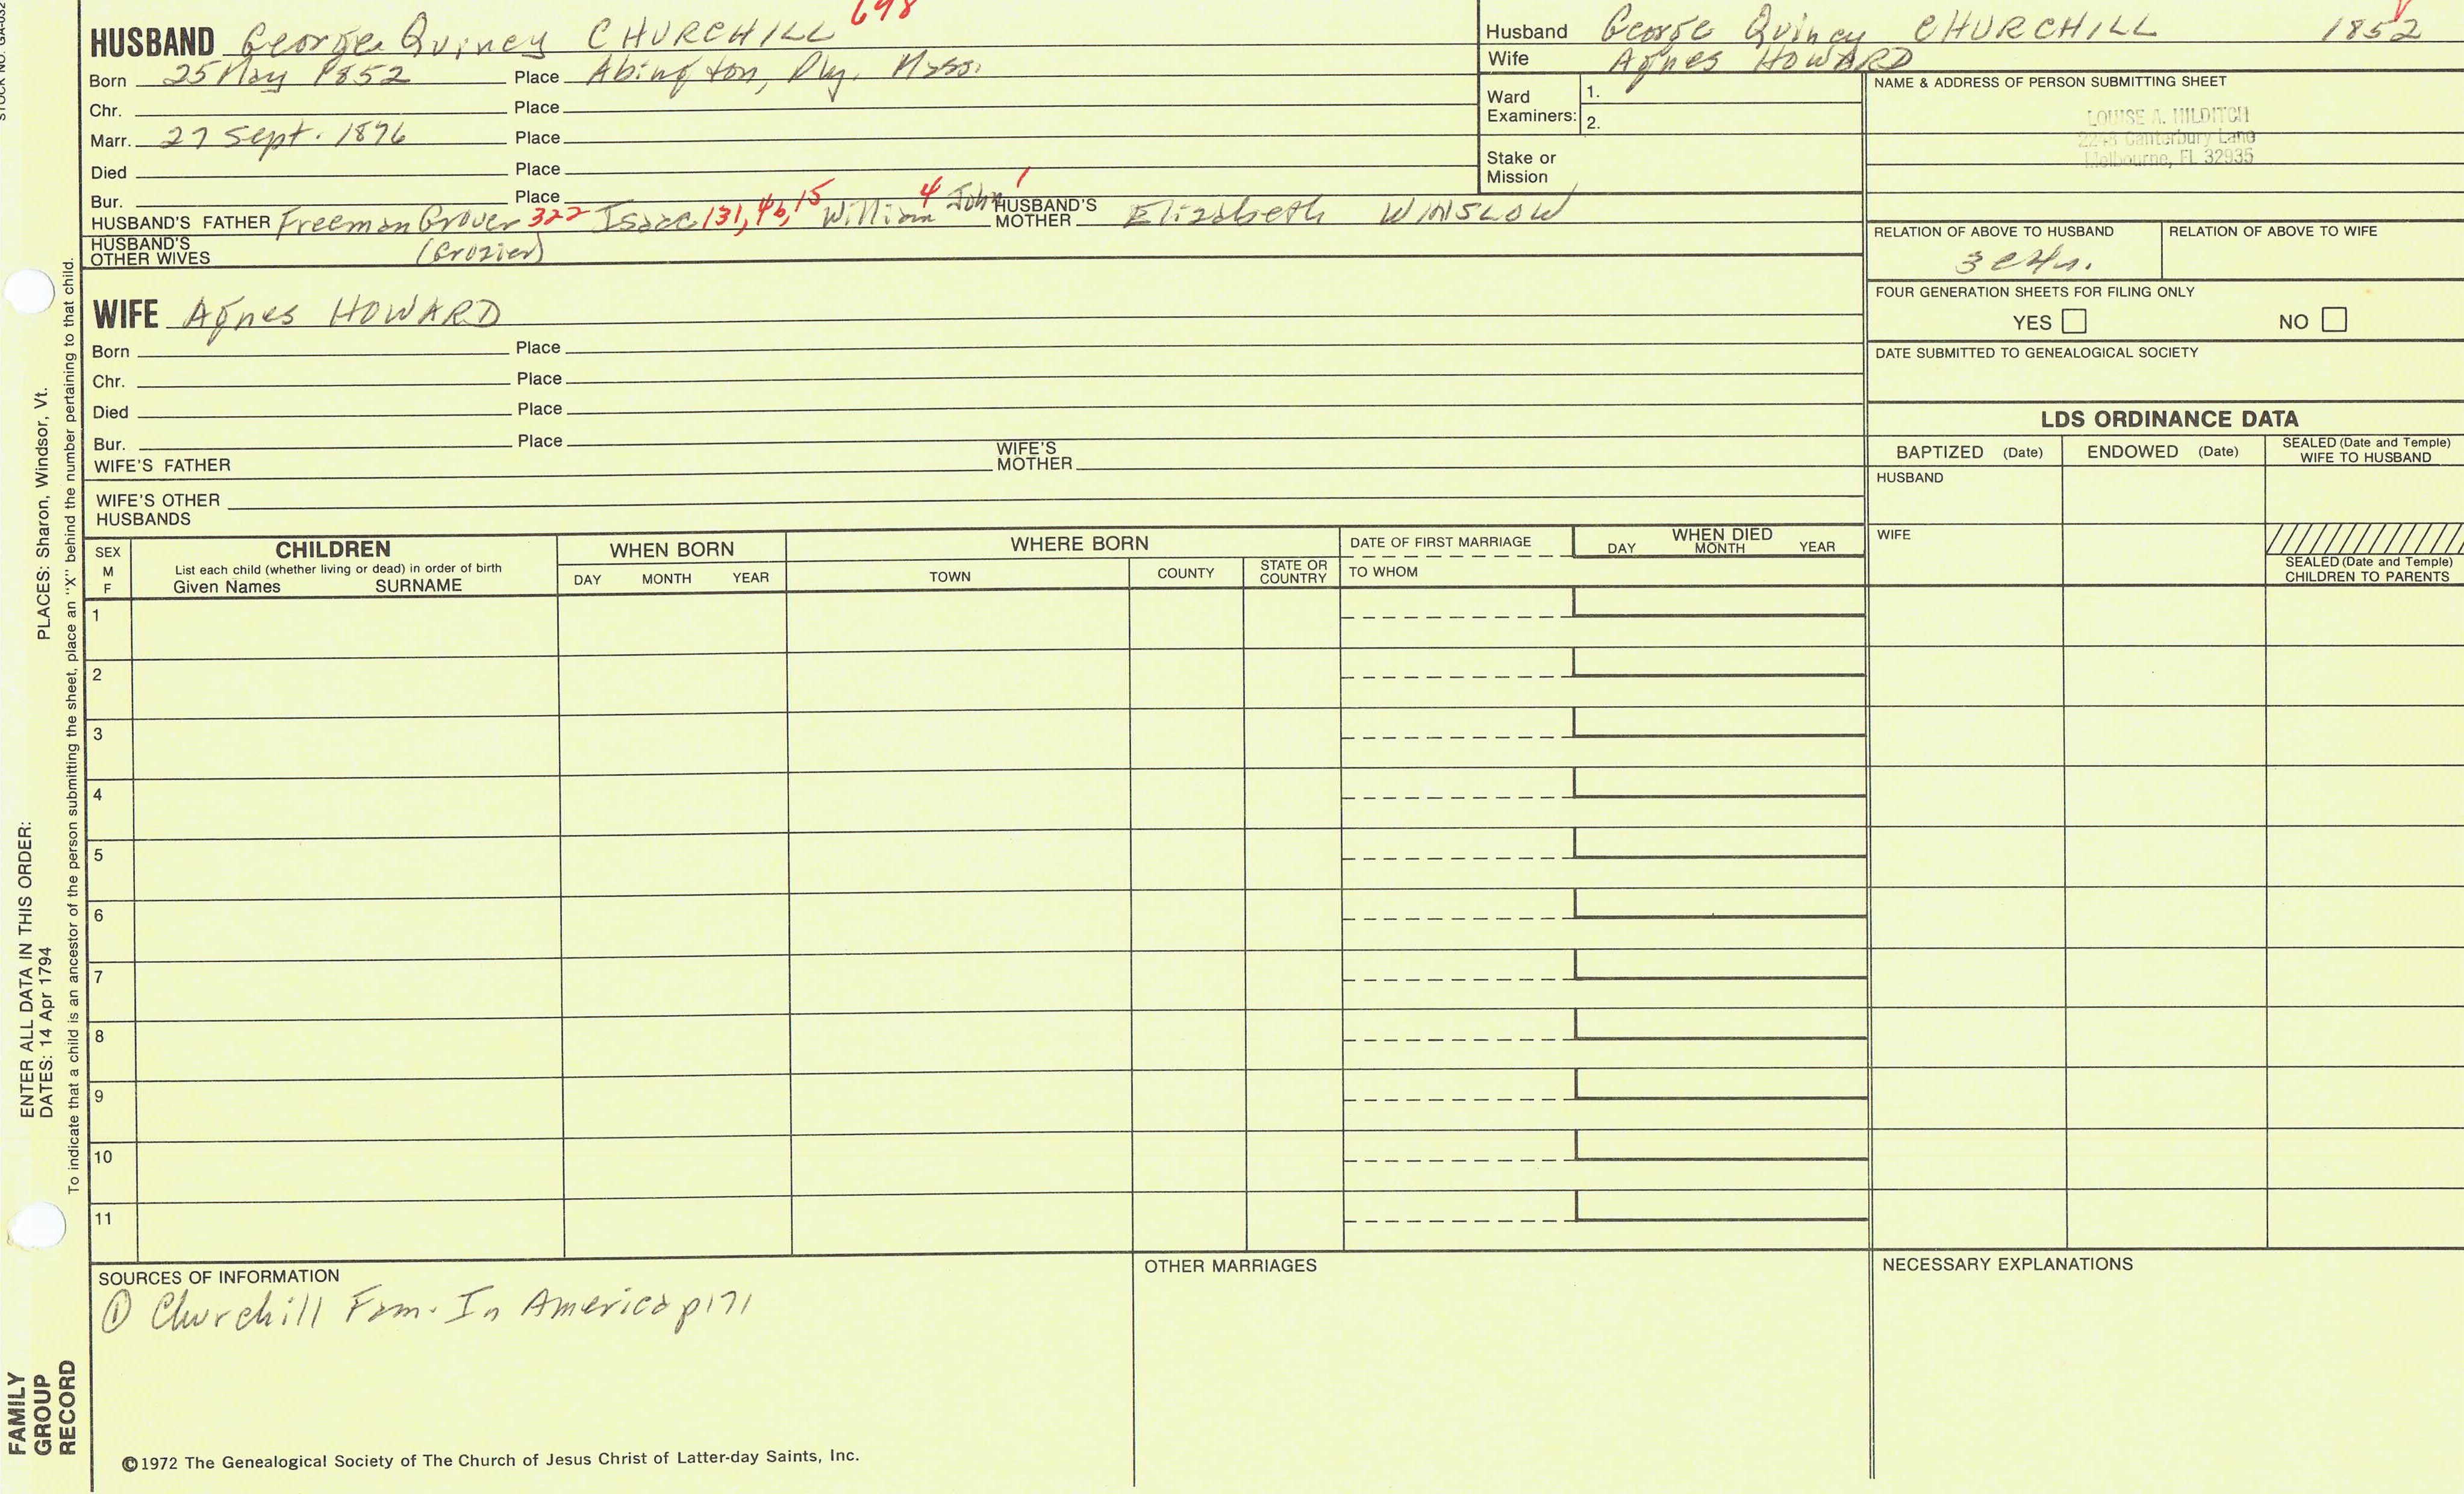 STOCK NO. GA-032
698
HUSBAND George Quincy CHURCHILL
Born 25 May 1852 Place Abington, Ply. Mass.
Chr. Place
Marr. 27 Sept. 1876 Place
Died Place
Bur. Place
HUSBAND'S FATHER Freeman Grover 322 Isaac 131, 46, 15 William 4 John 1 HUSBAND'S MOTHER Elizabeth WINSLOW
HUSBAND'S OTHER WIVES (Crozier)
Husband George Quincy CHURCHILL 1852
Wife Agnes HOWARD
Ward Examiners: 1.
2.
Stake or Mission
NAME & ADDRESS OF PERSON SUBMITTING SHEET
LOUISE A. HILDITCH
Canterbury Lane
Melbourne, FL 32935
RELATION OF ABOVE TO HUSBAND RELATION OF ABOVE TO WIFE
FOUR GENERATION SHEETS FOR FILING ONLY
YES NO
DATE SUBMITTED TO GENEALOGICAL SOCIETY
WIFE Agnes HOWARD
Born Place
Chr. Place
Died Place
Bur. Place
WIFE'S FATHER WIFE'S MOTHER
WIFE'S OTHER HUSBANDS
LDS ORDINANCE DATA
BAPTIZED (Date) ENDOWED (Date) SEALED (Date and Temple) WIFE TO HUSBAND
HUSBAND
WIFE
SEALED (Date and Temple) CHILDREN TO PARENTS
SEX M F
CHILDREN
List each child (whether living or dead) in order of birth
Given Names SURNAME
WHEN BORN
DAY MONTH YEAR
WHERE BORN
TOWN COUNTY STATE OR COUNTRY
DATE OF FIRST MARRIAGE
TO WHOM
WHEN DIED
DAY MONTH YEAR
1
2
3
4
5
6
7
8
9
10
11
SOURCES OF INFORMATION
① Churchill Fam. In America p171
OTHER MARRIAGES
NECESSARY EXPLANATIONS
©1972 The Genealogical Society of The Church of Jesus Christ of Latter-day Saints, Inc.
FAMILY GROUP RECORD
ENTER ALL DATA IN THIS ORDER:
DATES: 14 Apr 1794
PLACES: Sharon, Windsor, Vt.
To indicate that a child is an ancestor of the person submitting the sheet, place an "X" behind the number pertaining to that child.